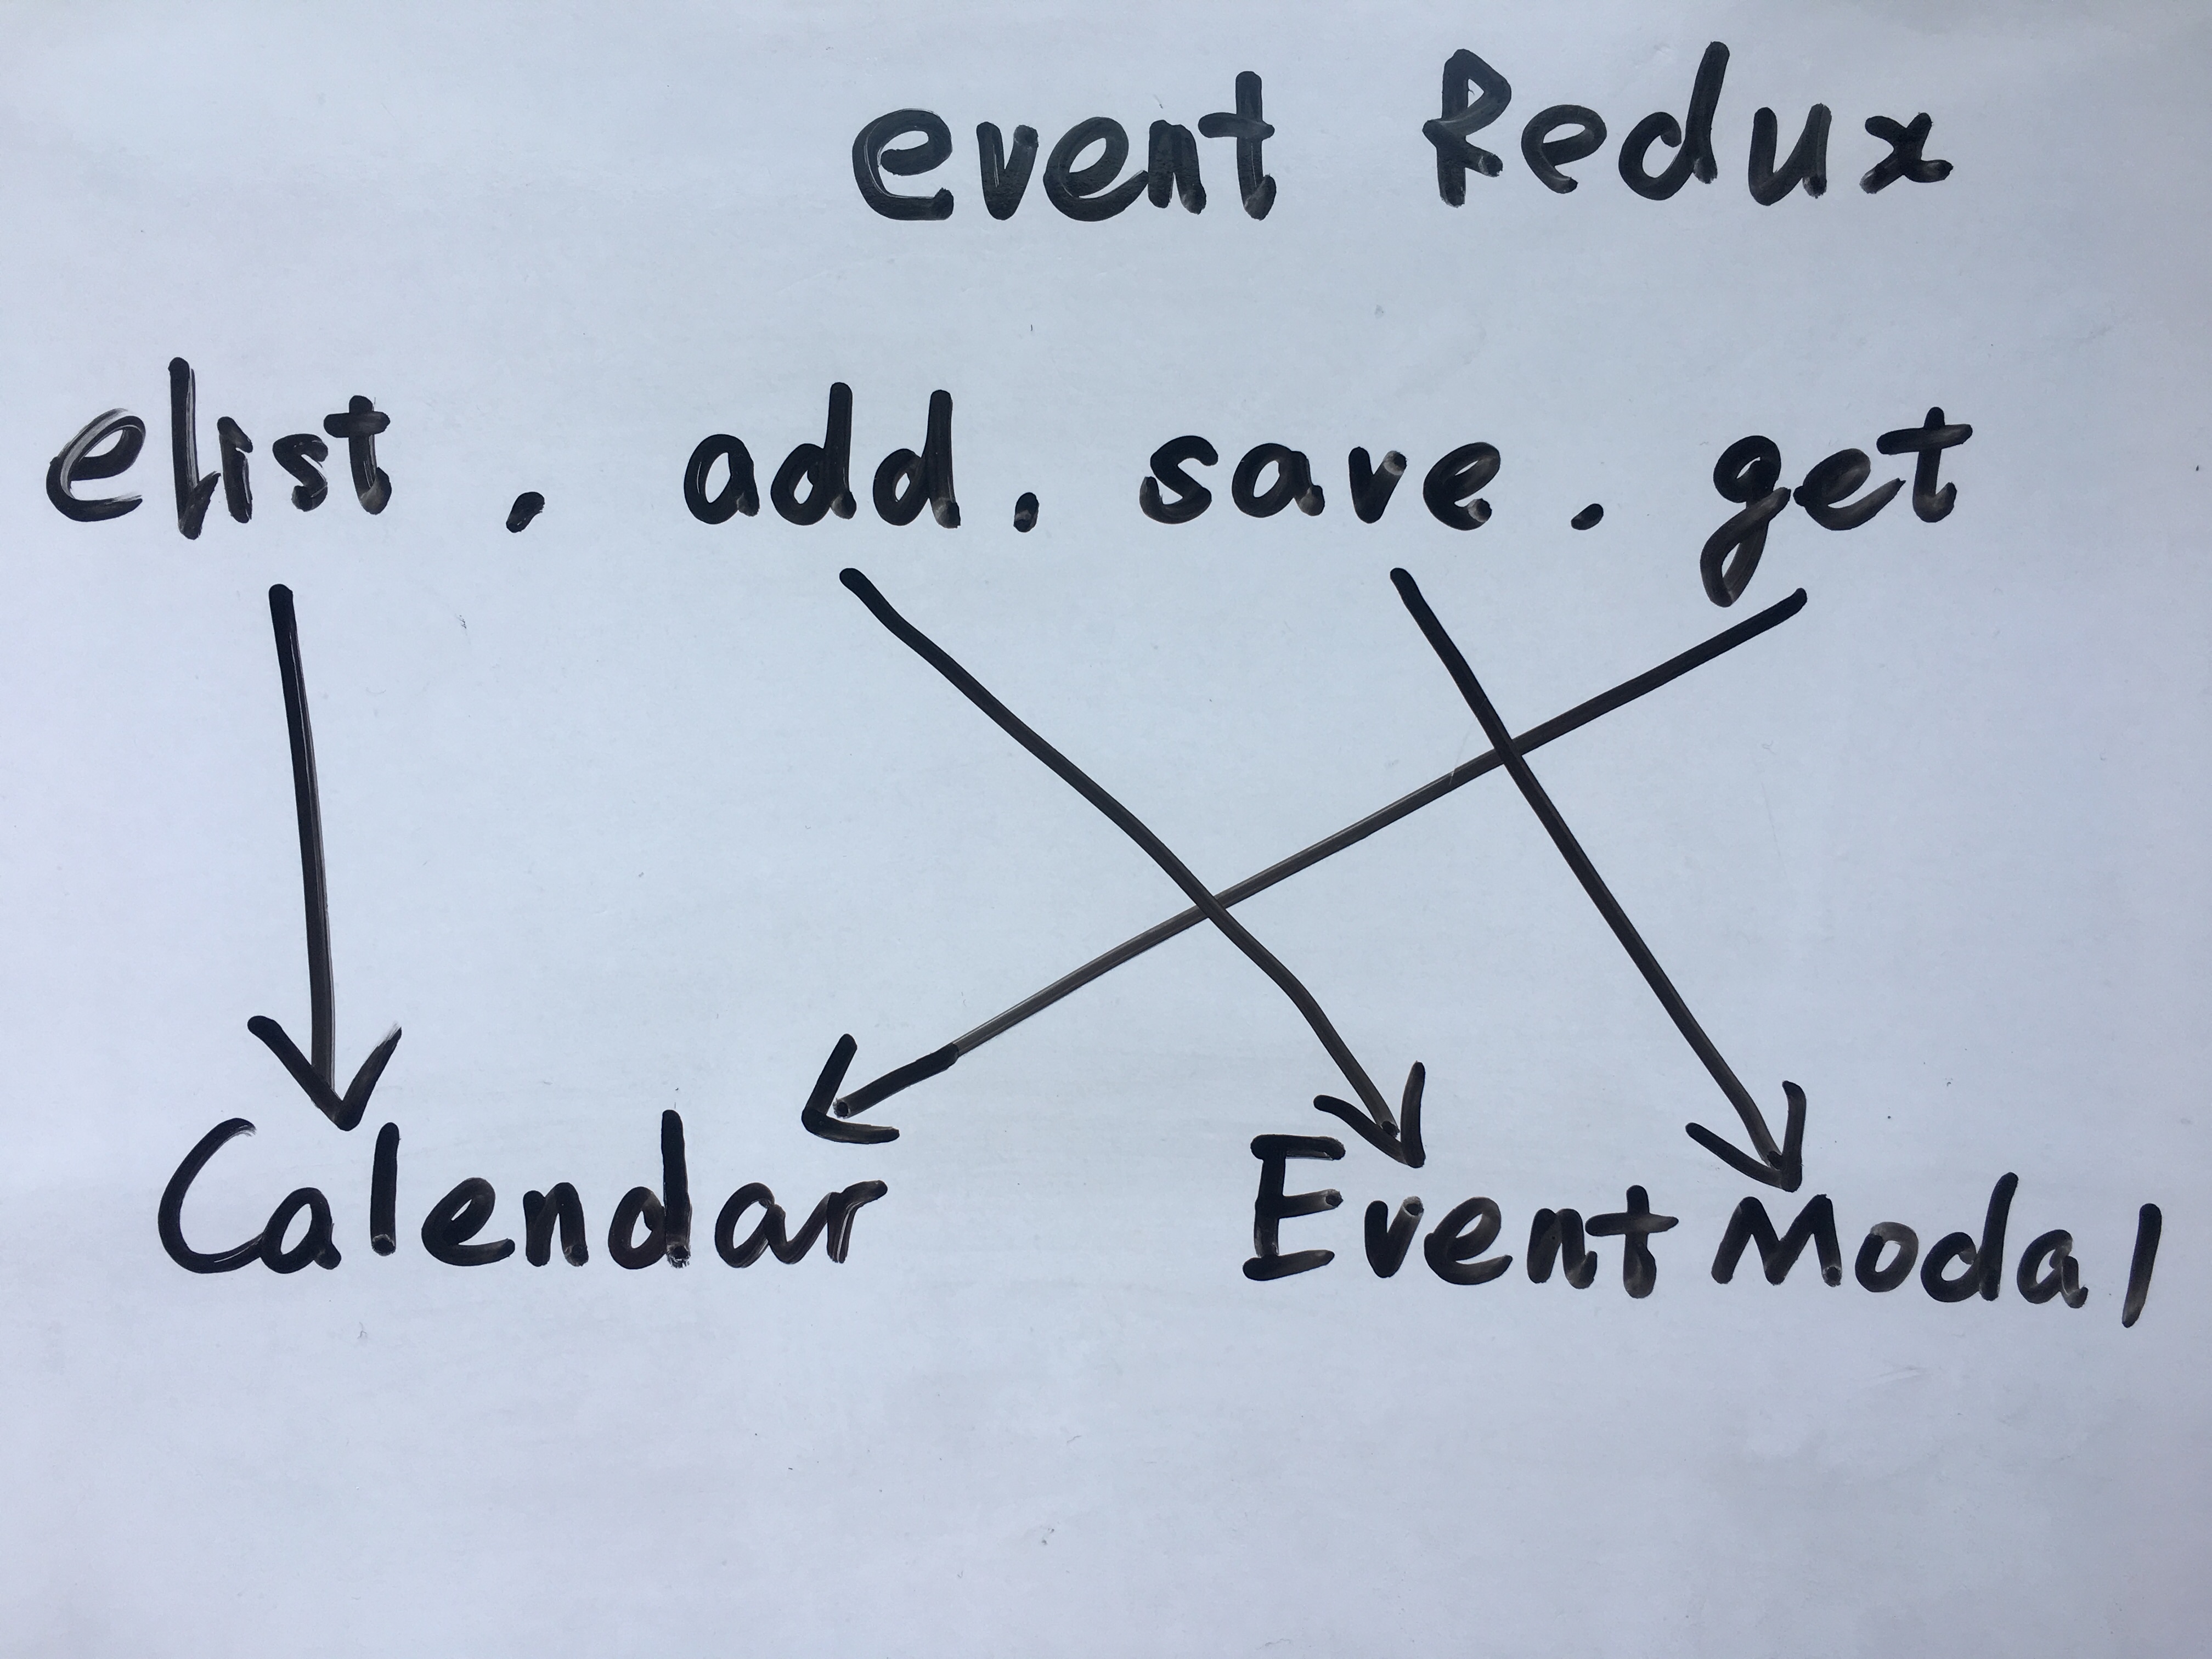 event Redux
elist . add . save . get
Calendar Event Modal